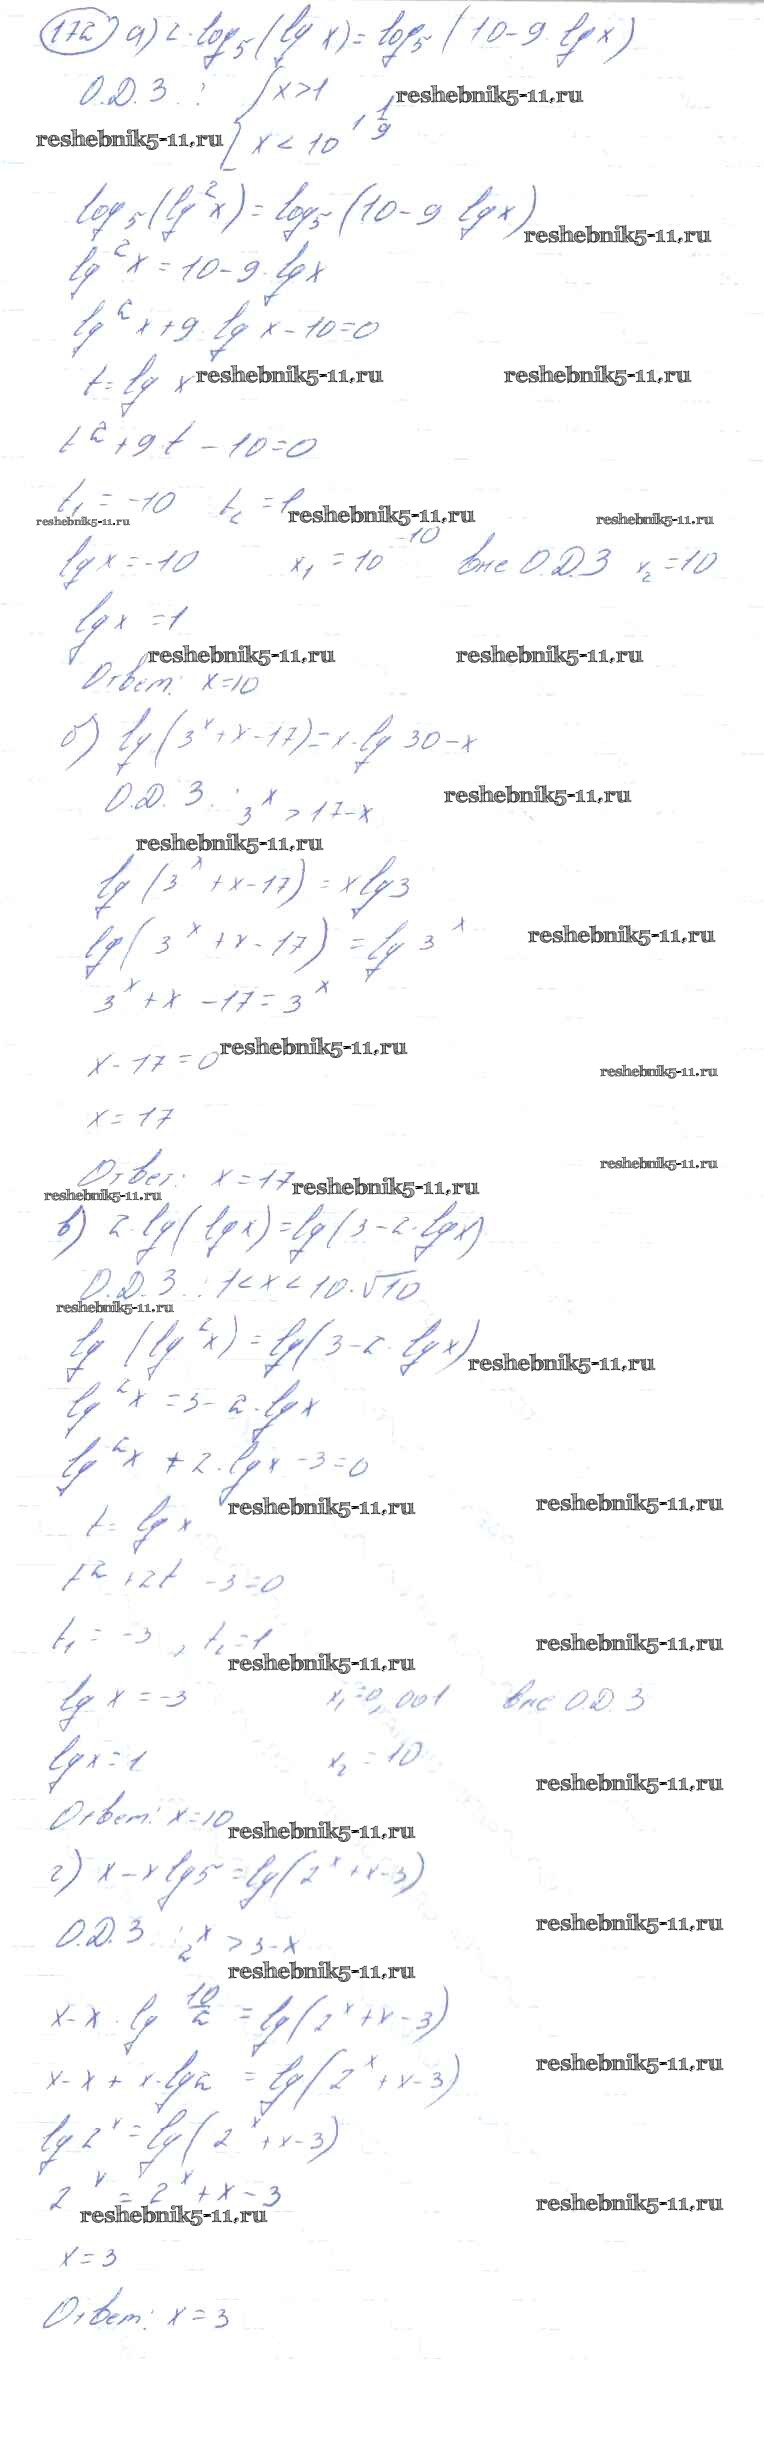 172 а) 2·log₅(lg x) = log₅(10-9·lg x)
О.Д.З.: { x>1
reshebnik5-11.ru
reshebnik5-11.ru
x < 10^(1 1/9)
log₅(lg²x) = log₅(10-9 lg x)
reshebnik5-11.ru
lg²x = 10-9·lg x
lg²x + 9·lg x - 10 = 0
t = lg x
reshebnik5-11.ru reshebnik5-11.ru
t² + 9t - 10 = 0
t₁ = -10 t₂ = 1
reshebnik5-11.ru reshebnik5-11.ru reshebnik5-11.ru
lg x = -10 x₁ = 10⁻¹⁰ вне О.Д.З x₂ = 10
lg x = 1
reshebnik5-11.ru reshebnik5-11.ru
Ответ: x=10
б) lg(3ˣ+x-17) = x·lg 30 - x
О.Д.З.: 3ˣ > 17-x
reshebnik5-11.ru
reshebnik5-11.ru
lg(3ˣ+x-17) = x lg 3
lg(3ˣ+x-17) = lg 3ˣ
reshebnik5-11.ru
3ˣ + x - 17 = 3ˣ
x - 17 = 0
reshebnik5-11.ru
reshebnik5-11.ru
x = 17
reshebnik5-11.ru
Ответ: x = 17
reshebnik5-11.ru reshebnik5-11.ru
в) 2·lg(lg x) = lg(3-2·lg x)
О.Д.З.: 1 < x < 10·√10
reshebnik5-11.ru
lg(lg²x) = lg(3-2·lg x)
reshebnik5-11.ru
lg²x = 3-2·lg x
lg²x + 2·lg x - 3 = 0
reshebnik5-11.ru reshebnik5-11.ru
t = lg x
t² + 2t - 3 = 0
t₁ = -3, t₂ = 1
reshebnik5-11.ru reshebnik5-11.ru
lg x = -3 x₁ = 0,001 вне О.Д.З
lg x = 1 x₂ = 10
reshebnik5-11.ru
Ответ: x=10
reshebnik5-11.ru
г) x - x lg 5 = lg(2ˣ+x-3)
О.Д.З.: 2ˣ > 3-x
reshebnik5-11.ru
reshebnik5-11.ru
x - x·lg 10/2 = lg(2ˣ+x-3)
x - x + x·lg 2 = lg(2ˣ+x-3)
reshebnik5-11.ru
lg 2ˣ = lg(2ˣ+x-3)
2ˣ = 2ˣ+x-3
reshebnik5-11.ru reshebnik5-11.ru
x = 3
Ответ: x = 3